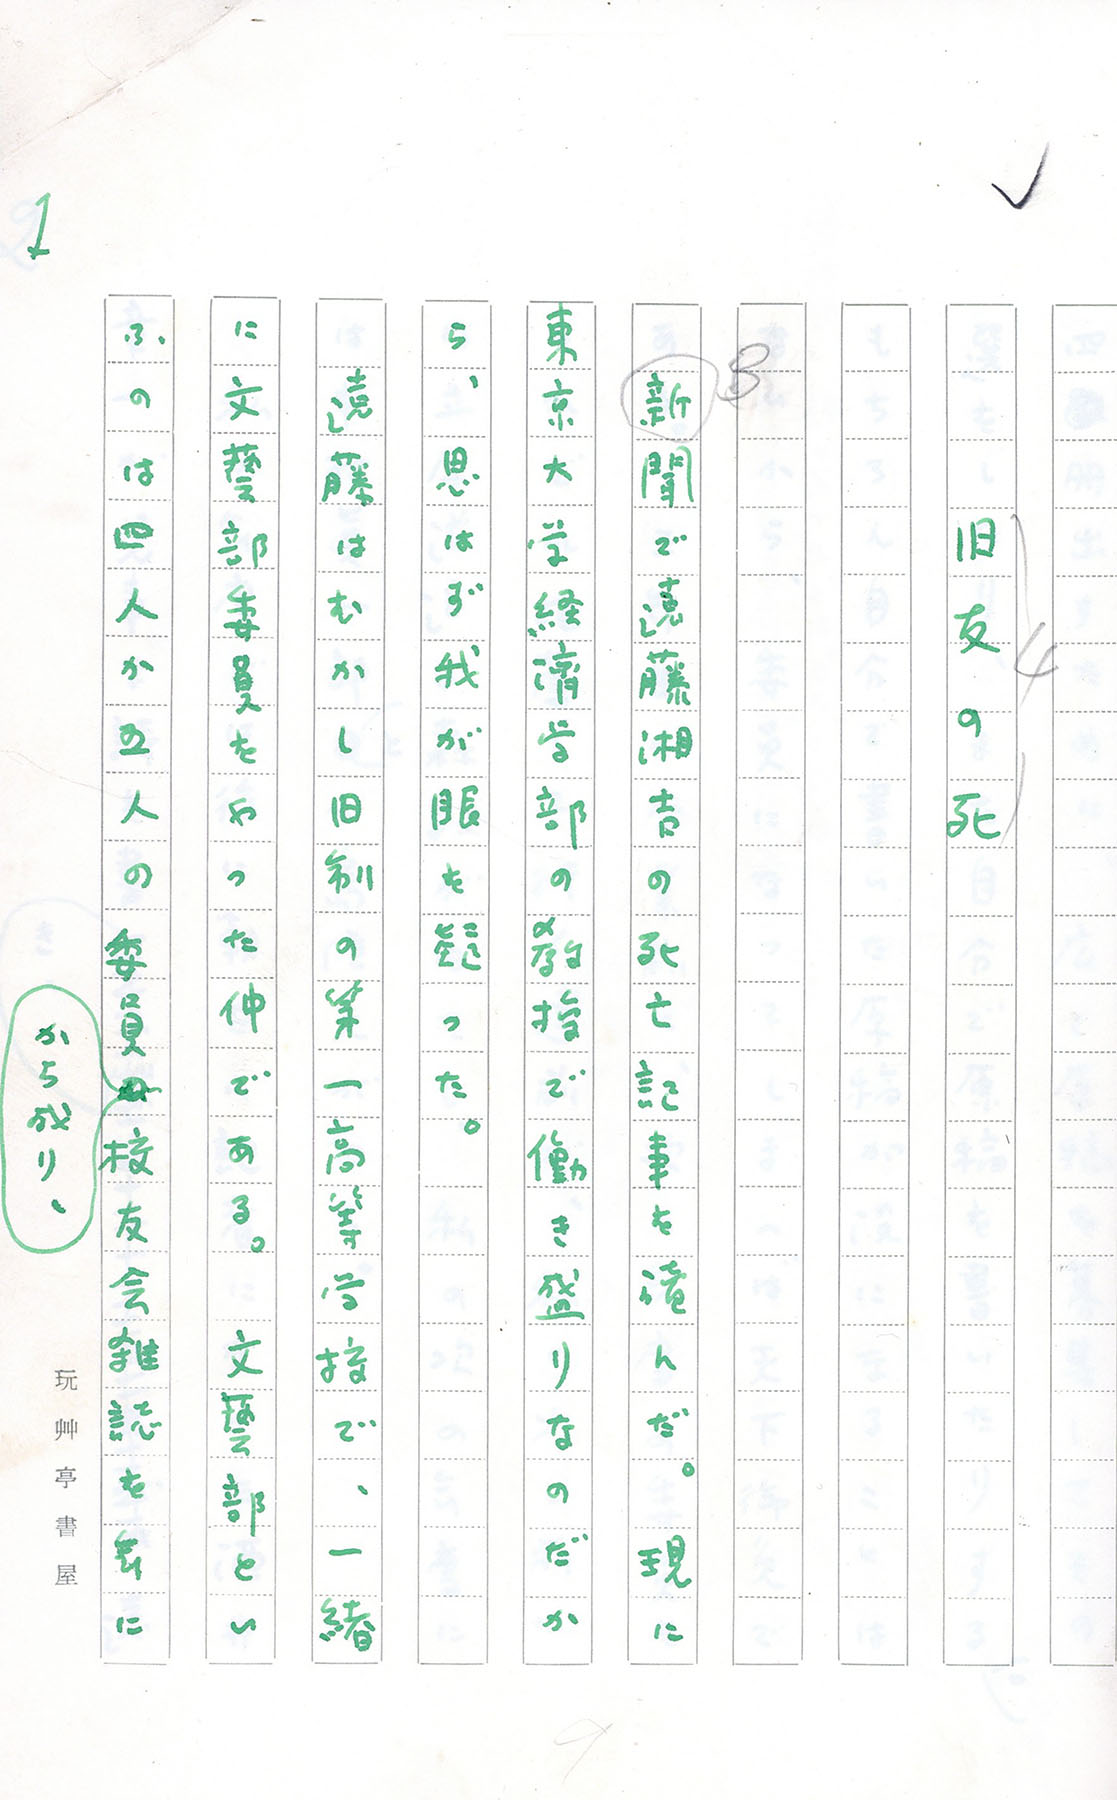 旧友の死
4
新聞で遠藤湘吉の死亡記事を讀んだ。現に
3
東京大学経済学部の教授で働き盛りなのだか
ら、思はず我が眼を疑った。
遠藤はむかし旧制の第一高等学校で、一緒
に文藝部委員をやった仲である。文藝部とい
ふのは四人か五人の委員から成り、校友会雑誌を年に
1
玩艸亭書屋